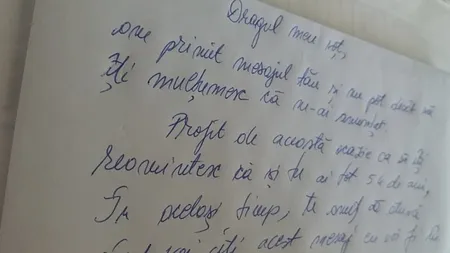 Dragul meu soț,
am primit mesajul tău și nu pot decît să
îți mulțumesc că m-ai anunțat.
Profit de această ocazie ca să îți
reamintesc că și tu ai tot 54 de ani,
În același timp, te anunț că
acest mesaj eu voi fi